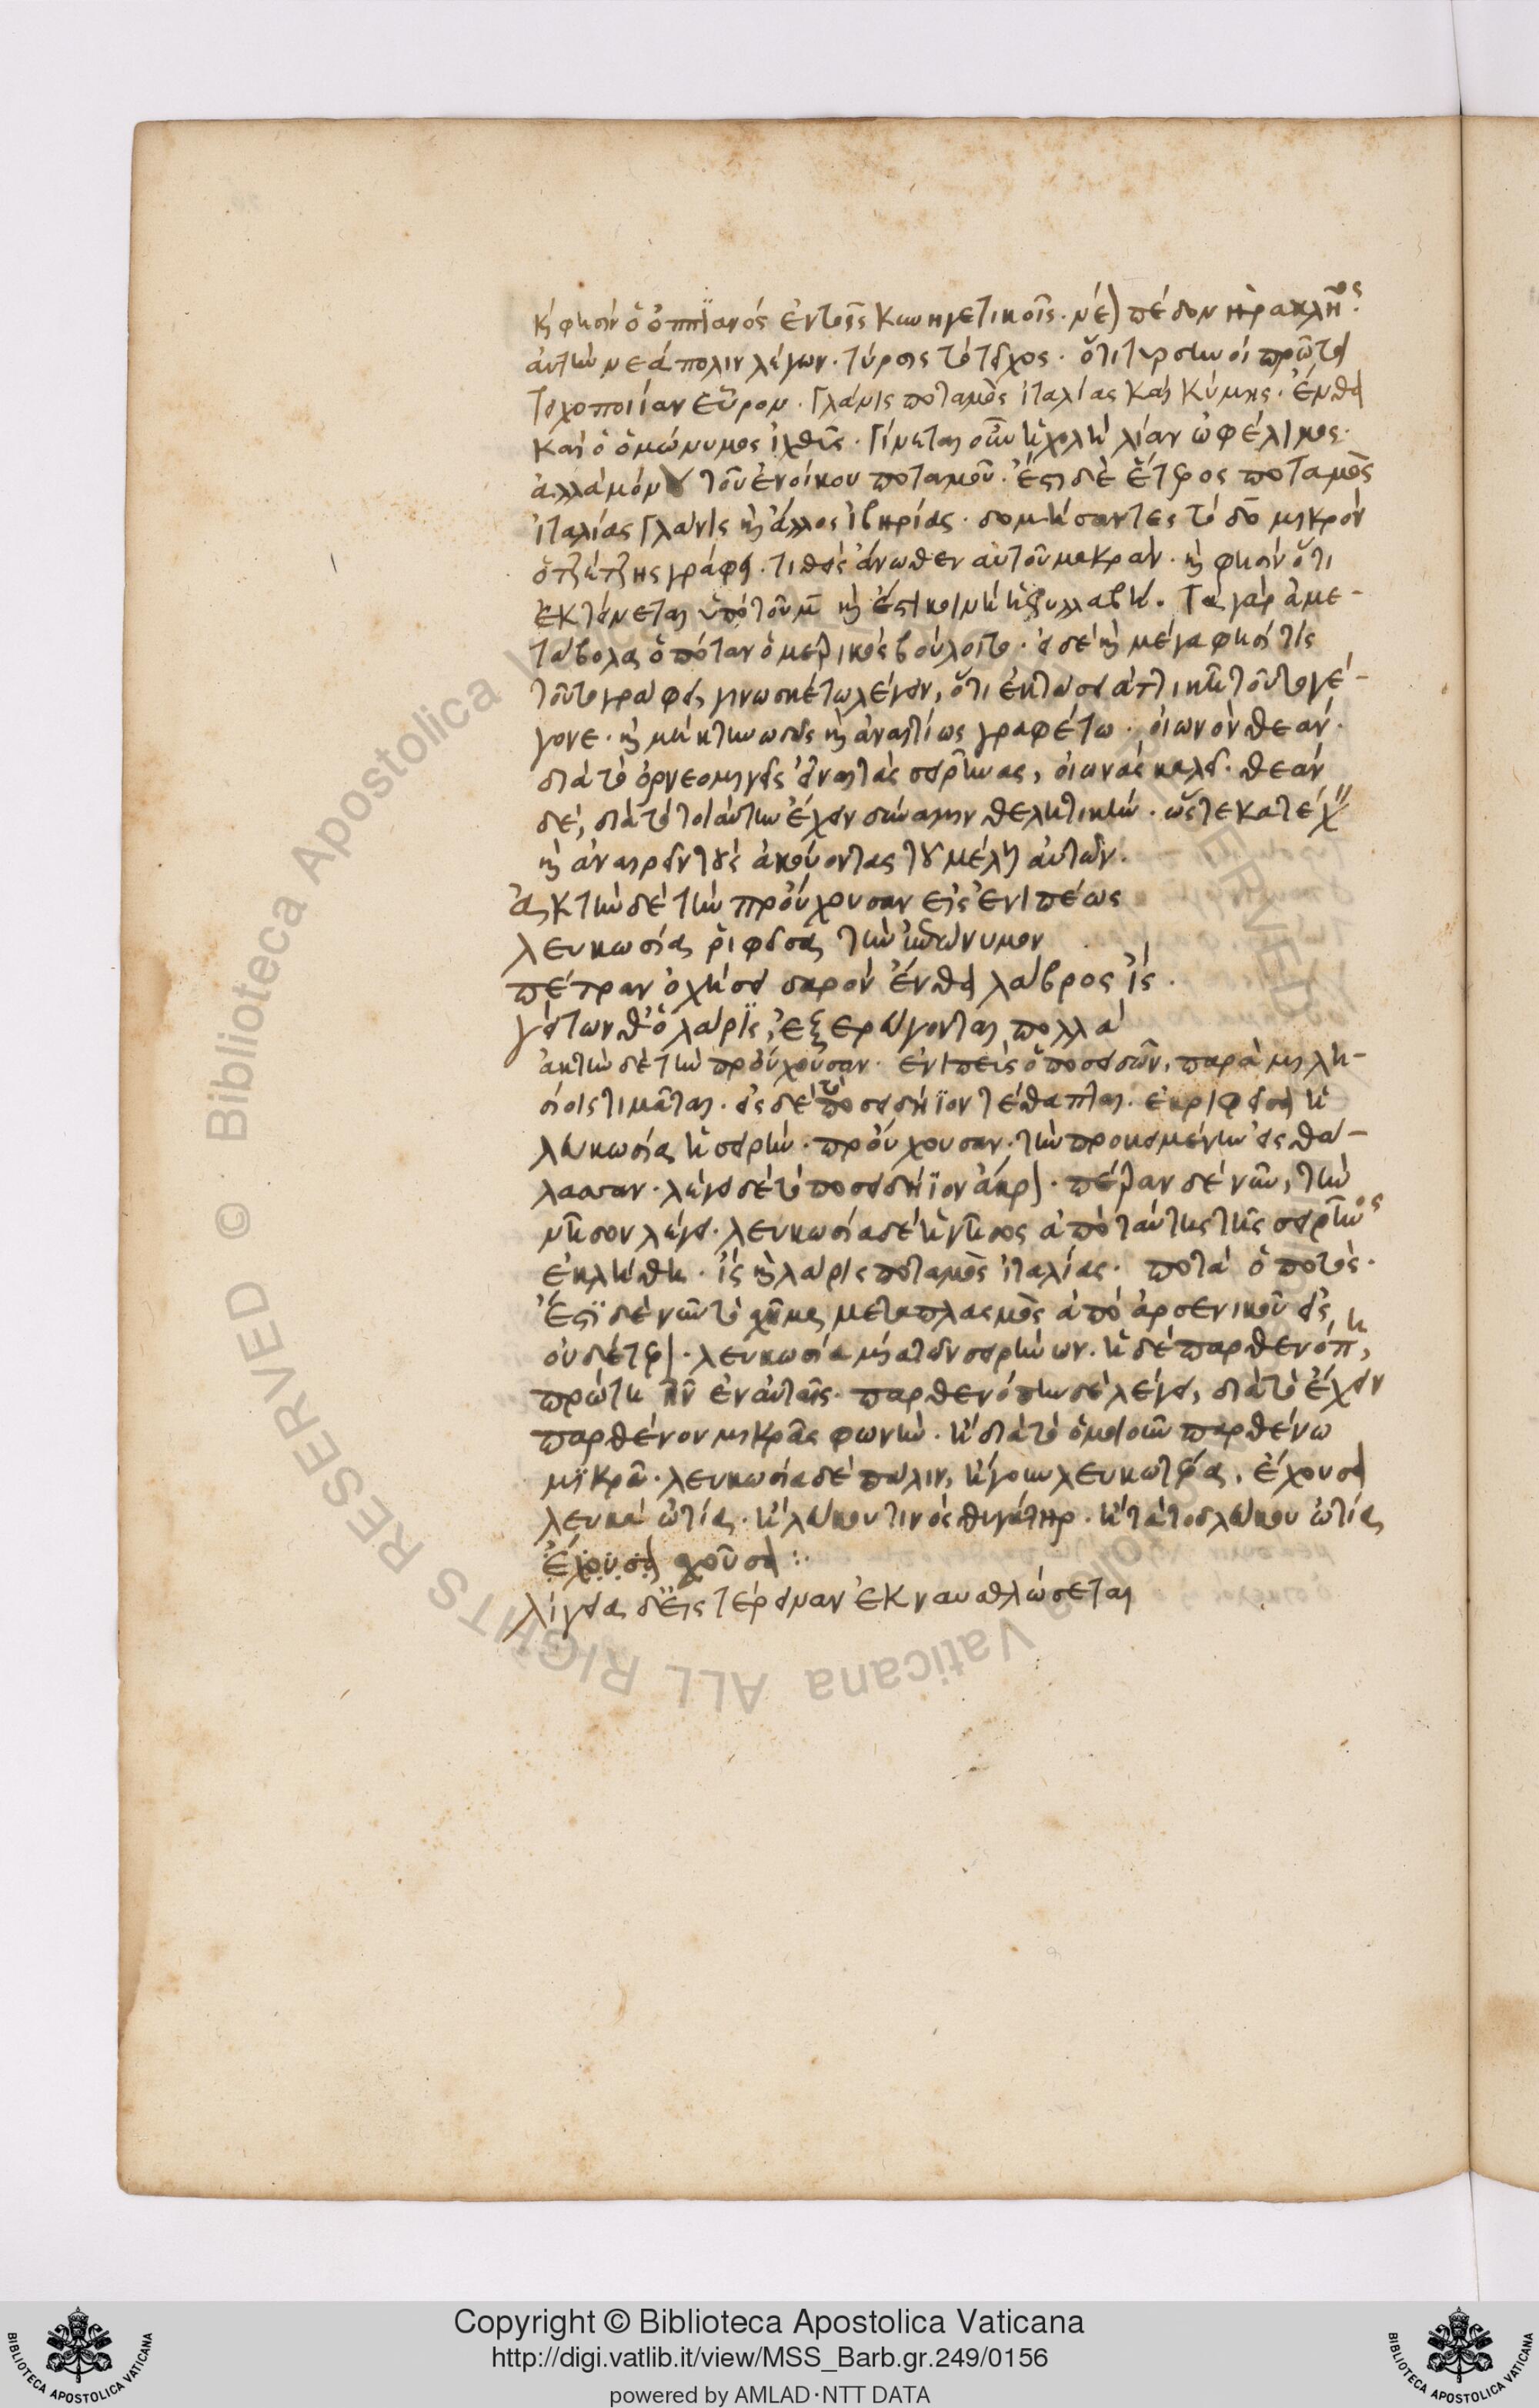 καὶ φησὶν ὁ ὀππϊανός ἐν τοῖς κυνηγετικοῖς. πέδον ἡρακλῆος
αὐτὴν νεάπολιν λέγων. τύρσις τὸ τεῖχος. ὅτι τυρσηνοὶ πρῶτοι
τειχοποιίαν εὗρον. Γλάνις ποταμὸς ἰταλίας καὶ κύμης. ἔνθα
καὶ ὁ ὁμώνυμος ἰχθῦς. γίνεται οὗ ἡ χολὴ λίαν ὠφέλιμος.
ἀλλὰ μόνου τοῦ ἐνοίκου ποταμοῦ. ἔστι δὲ ἕτερος ποταμὸς
ἰταλίας Γλάνις καὶ ἄλλος ἰβηρίας. δομήσαντες τὸ δο μικρὸν
ὁ τζέτζης γράφει. τιθεὶς ἄνωθεν αὐτοῦ μακρὰν. καὶ φησὶν ὅτι
ἐκτείνεται ὑπὸ τοῦ μ καὶ ἔστι κοινὴ ἡ συλλαβή. τὰ γὰρ ἀμε-
τάβολα ὁπόταν ὁ μετρικὸς βούλοιτο. εἰ δὲ καὶ μέγα φησί τίς
τοῦτο γράφεις γινωσκέτω λέγειν, ὅτι ἐκτάσει ἀττικῇ τοῦτο γέ-
γονε. καὶ μὴ κτηνωδῶς καὶ ἀναιτίως γραφέτω. οἰωνὸν θεάν.
διὰ τὸ ὀρνεομιγεῖς εἶναι τὰς σειρῆνας, οἰωνὰς καλεῖ. θεὰν
δέ, διὰ τὸ τοιαύτην ἔχειν δύναμιν θελκτικήν. ὥστε κατέχειν
καὶ ἀναιρεῖν τοὺς ἀκούοντας τοῦ μέλη αὐτῶν.
ἀκτὴν δὲ τὴν προὔχουσαν εἰς ἐνιπέως
λευκωσία ῥιφεῖσα τὴν ἐπώνυμον
πέτραν ὀχήσει δαρὸν ἔνθα λάβρος ἲς.
γείτων θ' ὁ λάρϊς, ἐξερεύγονται ποτά
ἀκτὴν δὲ τὴν προὔχουσαν. ἐνιπεὺς ὁ ποσειδῶν, παρὰ μιλη-
σίοις τιμᾶται. εἰς δὲ τὸ ποσειδήϊον τέθαπται. ἐκριφεῖσα ἡ
λευκωσία ἡ σειρήν. προὔχουσαν. τὴν προκειμένην εἰς θά-
λασσαν. λέγει δὲ τὸ ποσειδήϊον ἄκρον. πέτραν δὲ νῦν, τὴν
νῆσον λέγει. λευκωσία δὲ ἡ νῆσος ἀπὸ ταύτης τῆς σειρῆνος
ἐκλήθη. ἲς καὶ λάρις ποταμὸς ἰταλίας. ποτὰ ὁ ποτὸς.
ἔστϊ δὲ νῦν τὸ σχῆμα μεταπλασμὸς ἀπὸ ἀρσενικοῦ εἰς
οὐδέτερον. λευκωσία μία τῶν σειρήνων. ἡ δὲ παρθενόπη,
πρώτη ἦν ἐν αὐταῖς. παρθενόπην δὲ λέγει, διὰ τὸ ἔχειν
παρθένον μικρᾶς φωνὴν. ἢ διὰ τὸ ὁμοιοῦν παρθένω
μϊκρᾶ. λευκωσία δὲ πάλιν, ἤγουν λευκωτερία. ἔχουσα
λευκὰ ὠτία. ἢ λεύκου τινὸς θυγάτηρ. ἢ τὰ τοῦ λεύκου ὠτία
ἔχουσα σχοῦσα:
λίγεια δ' εἰς τέρειναν ἐκναυσθλώσεται
Copyright © Biblioteca Apostolica Vaticana
http://digi.vatlib.it/view/MSS_Barb.gr.249/0156
powered by AMLAD·NTT DATA